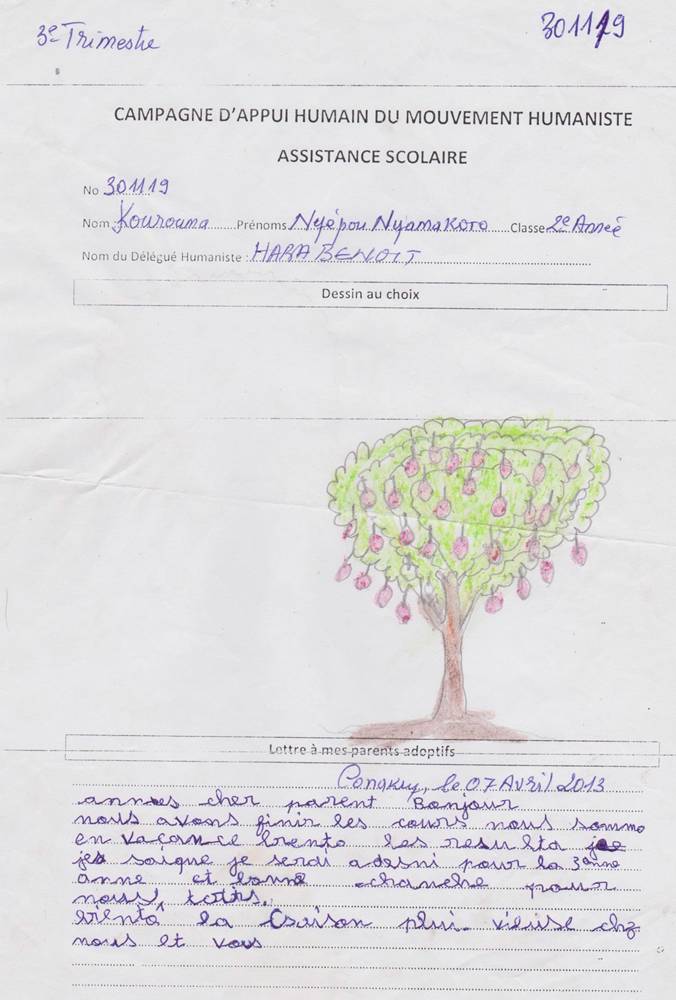 3e Trimestre
301119
CAMPAGNE D'APPUI HUMAIN DU MOUVEMENT HUMANISTE
ASSISTANCE SCOLAIRE
No 301119
Nom Kourouma Prénoms Nyépou Nyamakoro Classe 2e Année
Nom du Délégué Humaniste : HARA BENOIT
Dessin au choix
Lettre à mes parents adoptifs
le 07 Avril 2013
cher parent Bonjour
nous avons finir les cours nous somme
en vacance biento les resulta
je serai adesni pour la 3
anne et bonne chanche pour
nous touts.
biento la saison plui-vieuse chz
nous et vous